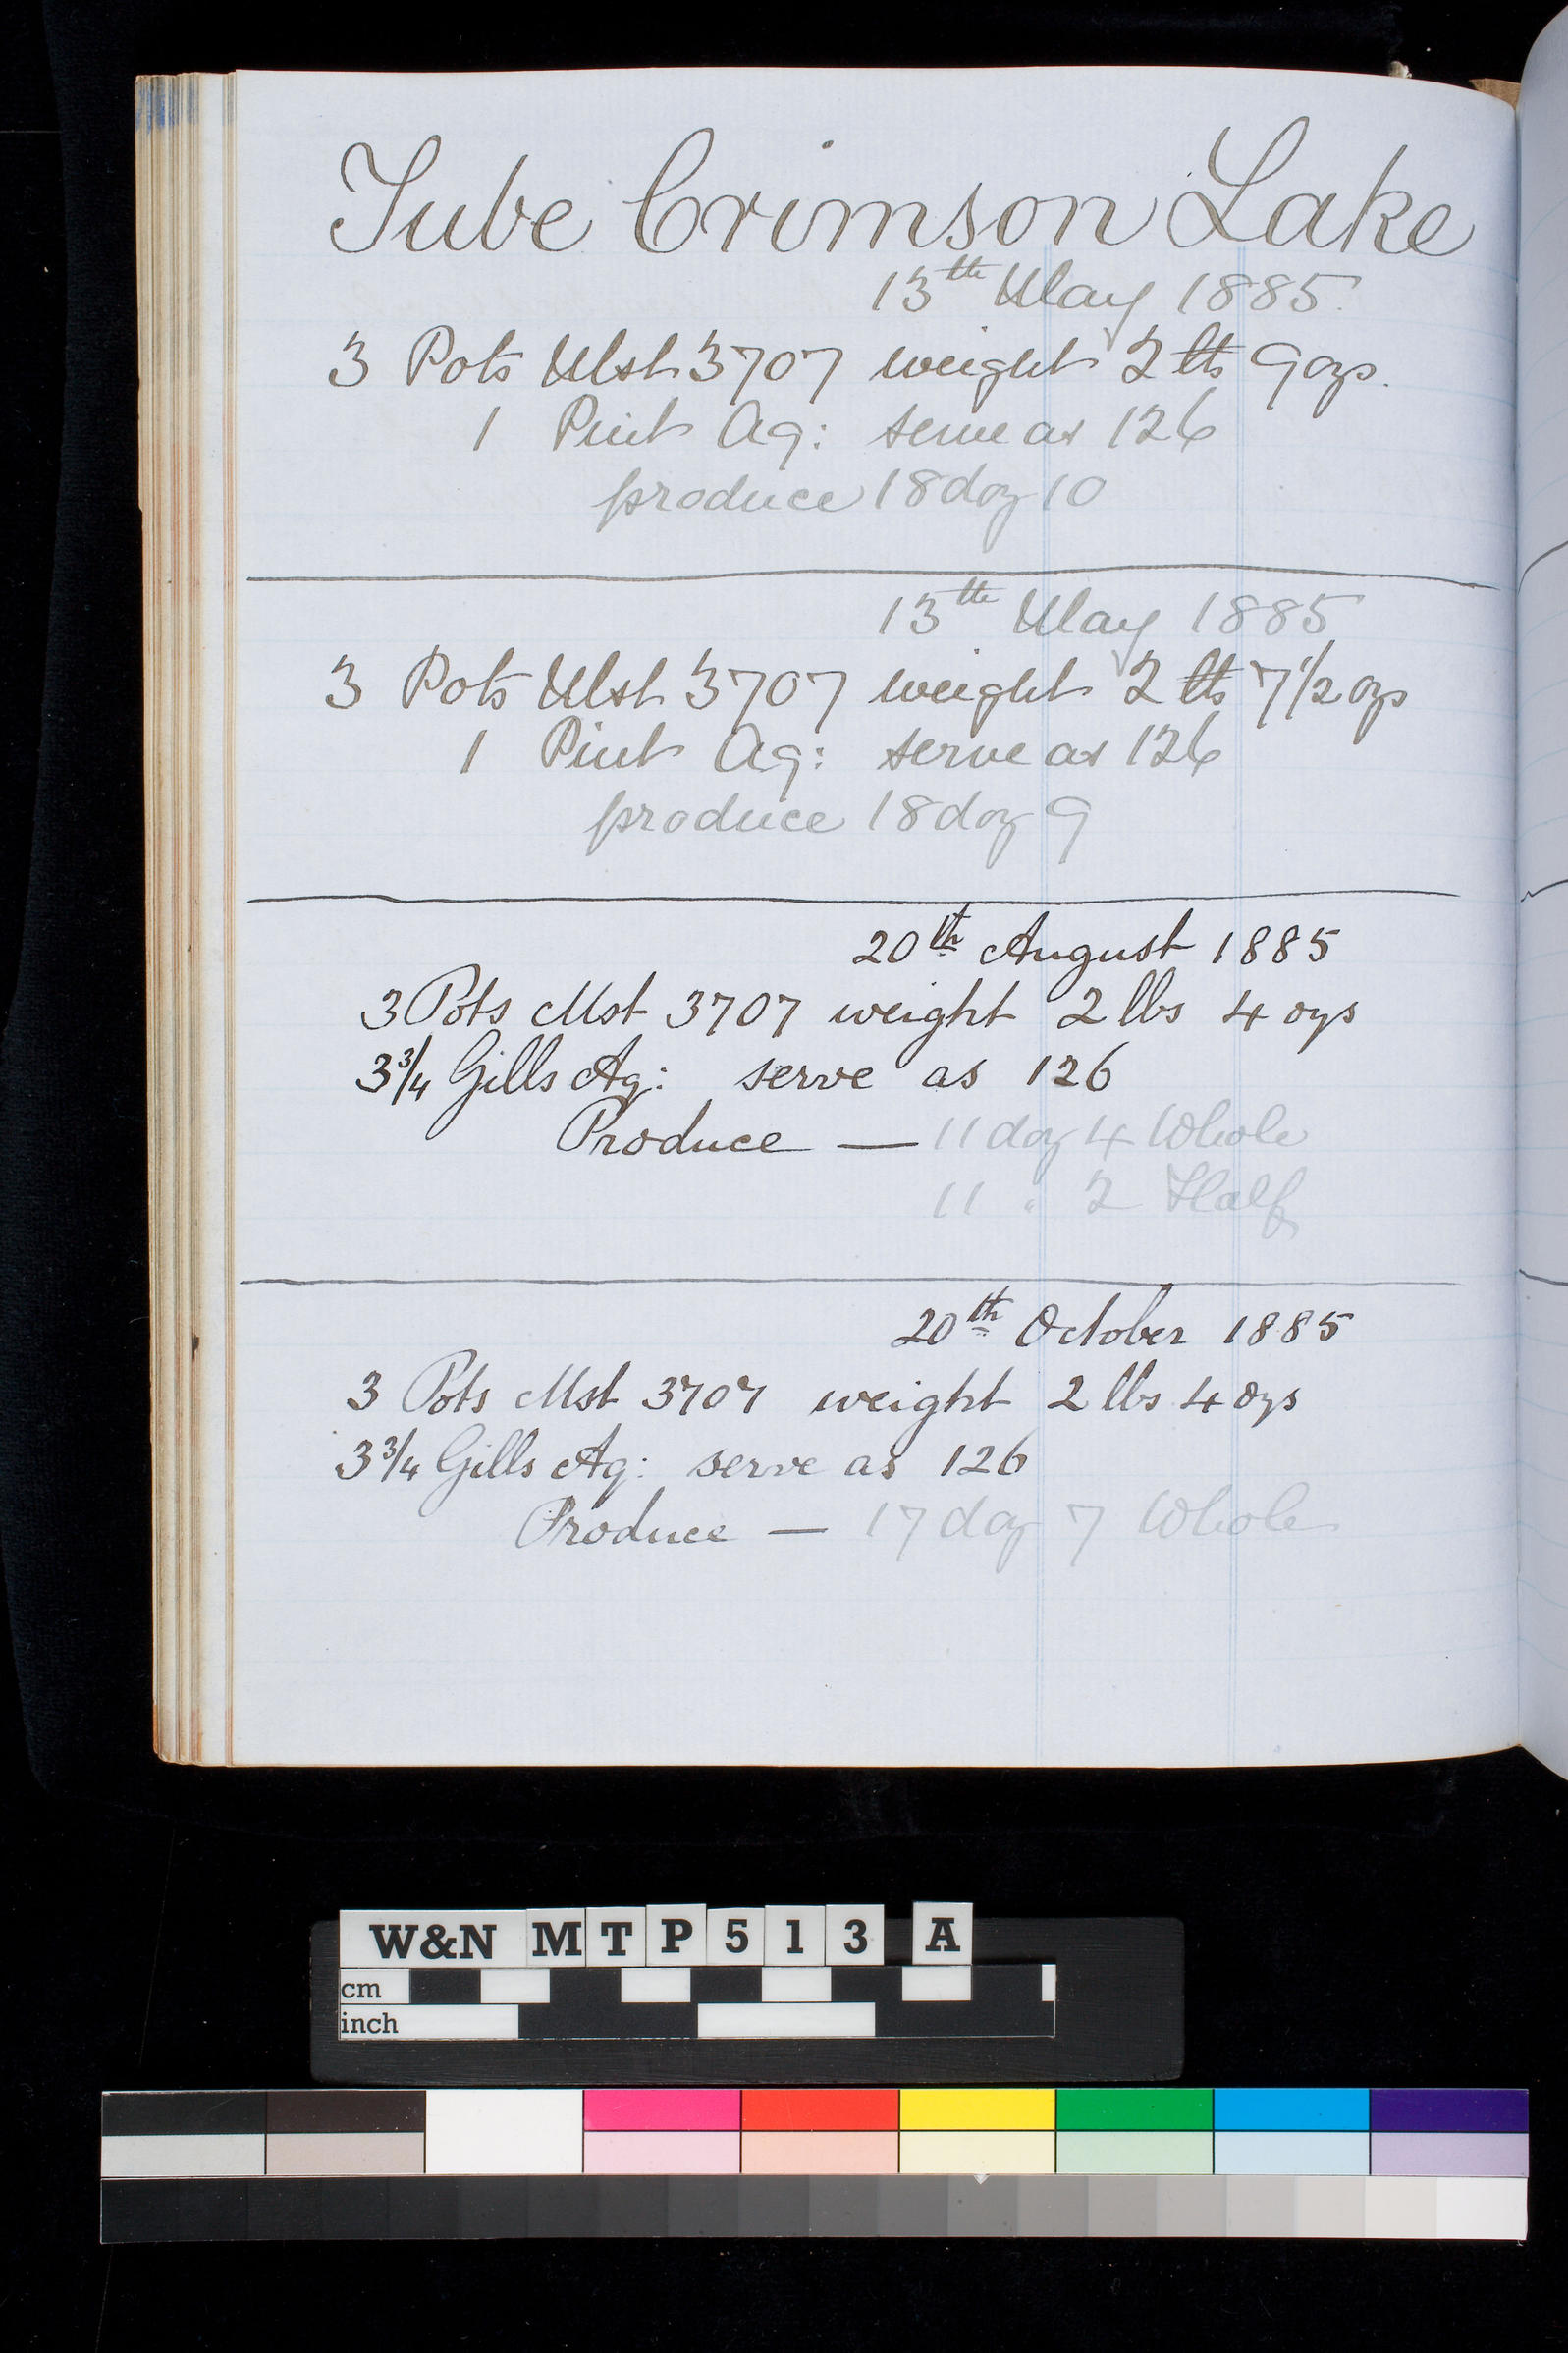 Tube Crimson Lake
13th May 1885.
3 Pots Mst 3707 weight 2 lbs 9 ozs.
1 Pint Aq: serve as 126
produce 18 doz 10
13th May 1885
3 Pots Mst 3707 weight 2 lbs 7 1/2 ozs
1 Pint Aq: serve as 126
produce 18 doz 9
20th August 1885
3 Pots Mst 3707 weight 2 lbs 4 ozs
3 3/4 Gills Aq: serve as 126
Produce — 11 doz 4 Whole
11 " 2 Half
20th October 1885
3 Pots Mst 3707 weight 2 lbs 4 ozs
3 3/4 Gills Aq: serve as 126
Produce — 17 doz 7 Whole
W&N MTP513 A
cm
inch